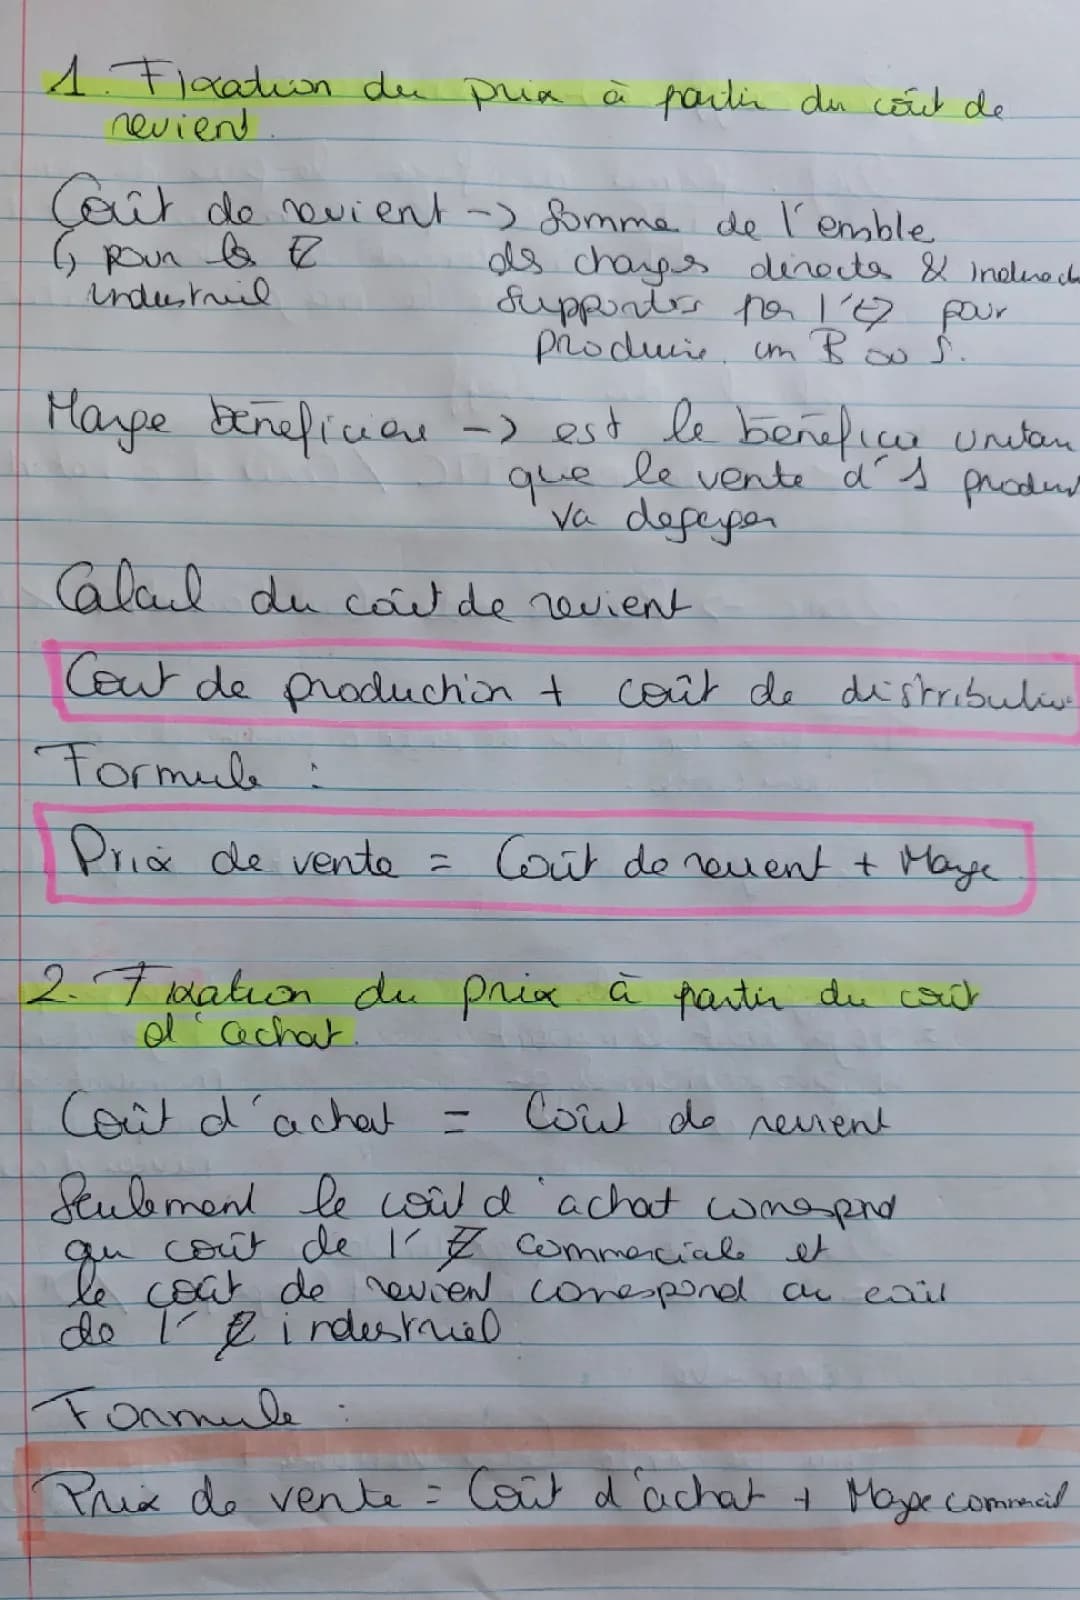 1. Fixation du prix à partir du coût de
revient.
Coût de revient -> Somme de l'emble
↳ pour les E
industriel
des charges directes & indirect
supportés par l'E pour
produire un B ou S.
Marge bénéficiaire -> est le bénéfice unitai
que le vente d'1 produit
va dégager
Calcul du coût de revient
Cout de production + coût de distribution
Formule :
Prix de vente = Coût de revient + Marge
2. Fixation du prix à partir du coût
d'achat.
Coût d'achat = Coût de revient
Seulement le coût d'achat correspond
au coût de l'E commerciale et
le coût de revient correspond au coût
de l'E industriel
Formule :
Prix de vente = Coût d'achat + Marge commercial